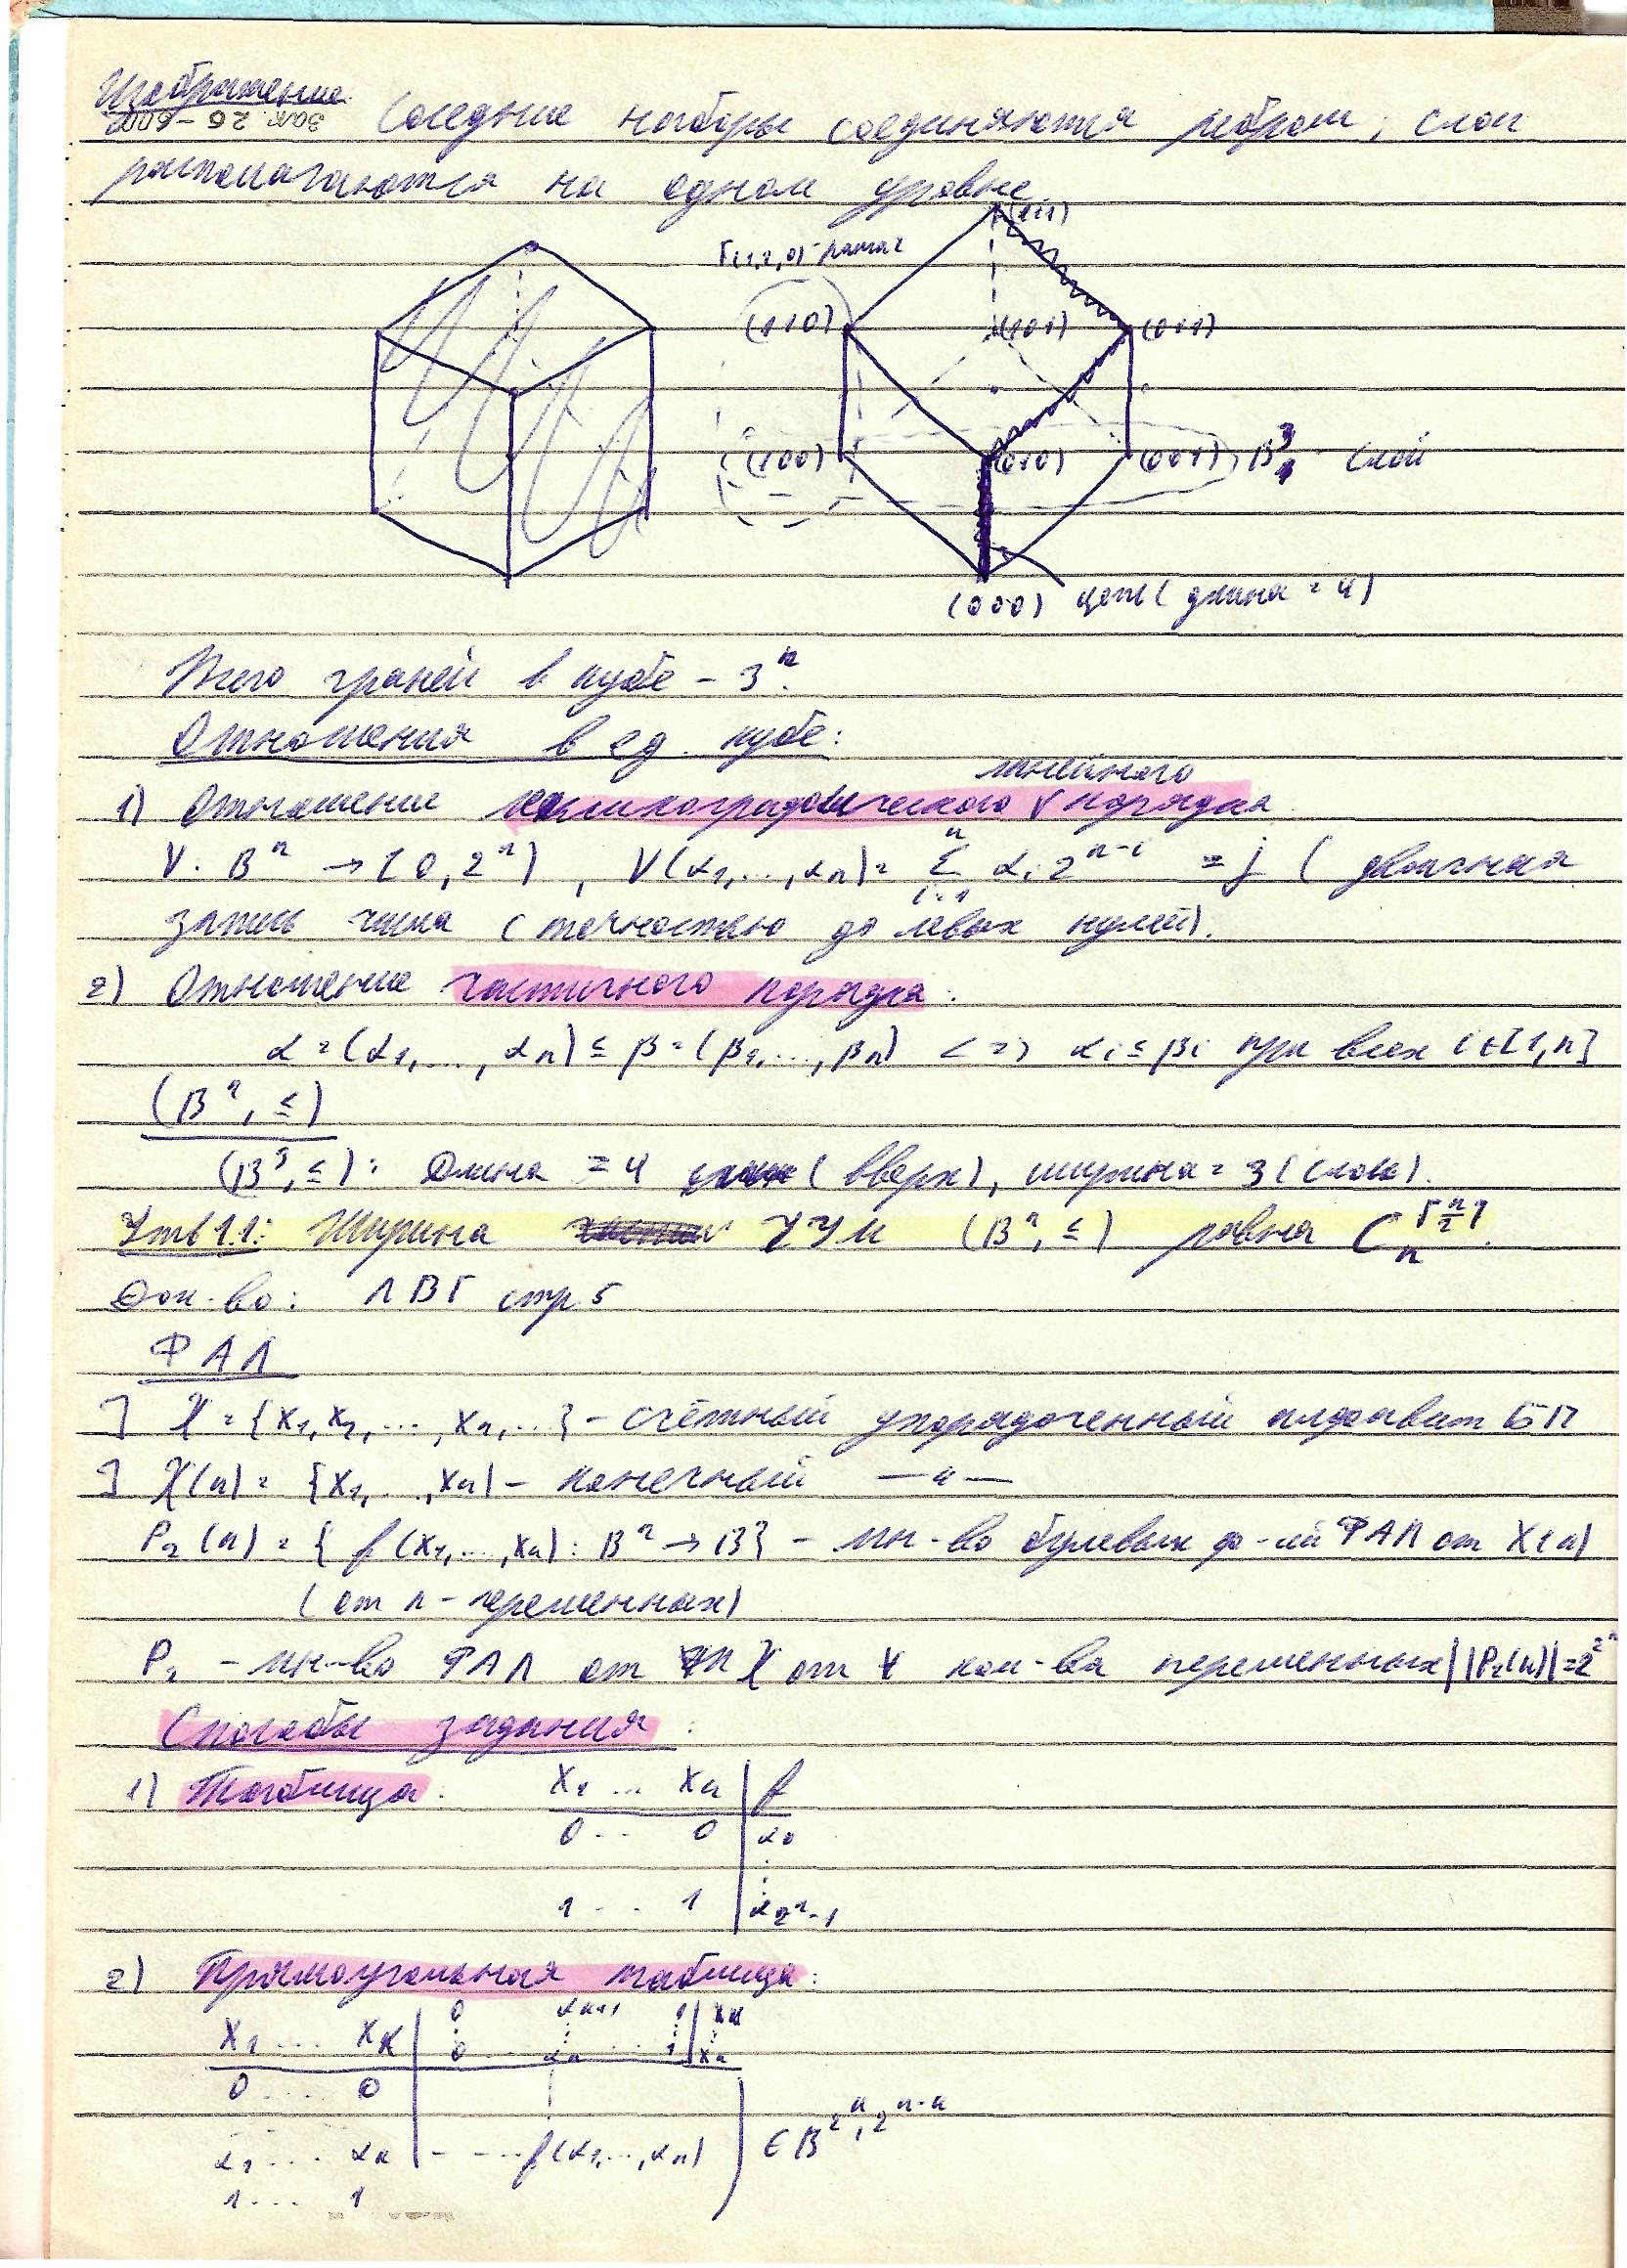 Изображение. Соседние наборы соединяются ребром, слои
располагаются на одном уровне
(111)
(110) (101) (011)
(100) (010) (001) B³₁ слой
(000) цепь (длина = 4)
Всего граней в кубе – 3ⁿ.
Отношения в ед. кубе:
линейного
1) Отношение лексикографического V порядка
ν: Bⁿ → [0, 2ⁿ), ν(α₁,...,αₙ) = Σ αᵢ 2ⁿ⁻ⁱ = j (двоичная
запись числа (с точностью до левых нулей).
2) Отношение частичного порядка:
α = (α₁,..., αₙ) ≤ β = (β₁,..., βₙ) <=> αᵢ ≤ βᵢ при всех i ∈ [1,n]
(Bⁿ, ≤)
(B³, ≤): Длина = 4 (вверх), ширина = 3 (слоя).
Утв 1.1: Ширина ЧУМ (Bⁿ, ≤) равна Cₙ^⌈n/2⌉.
Док-во: ЛВГ стр. 5
ФАЛ
] X = {x₁, x₂, ..., xₙ, ...} – счётный упорядоченный алфавит БП
] X(n) = {x₁, ..., xₙ} – конечный —"—
P₂(n) = { f(x₁,...,xₙ): Bⁿ → B} – мн-во булевых ф-ий ФАЛ от X(n)
(от n-переменных)
P₂ – мн-во ФАЛ от X от ∀ кол-ва переменных ||P₂(n)| = 2^2ⁿ
Способы задания:
1) Таблица:
x₁ ... xₙ | f
0 ... 0 | α₀
1 ... 1 | α₂ⁿ₋₁
2) Прямоугольная таблица:
0 αₖ₊₁ 1
x₁ ... xₖ | 0 ... αₙ ... 1 | xₙ
0 ... 0
α₁ ... αₖ | - - ... f(α₁,...,αₙ) ∈ B^2ᵏ,2ⁿ⁻ᵏ
1 ... 1